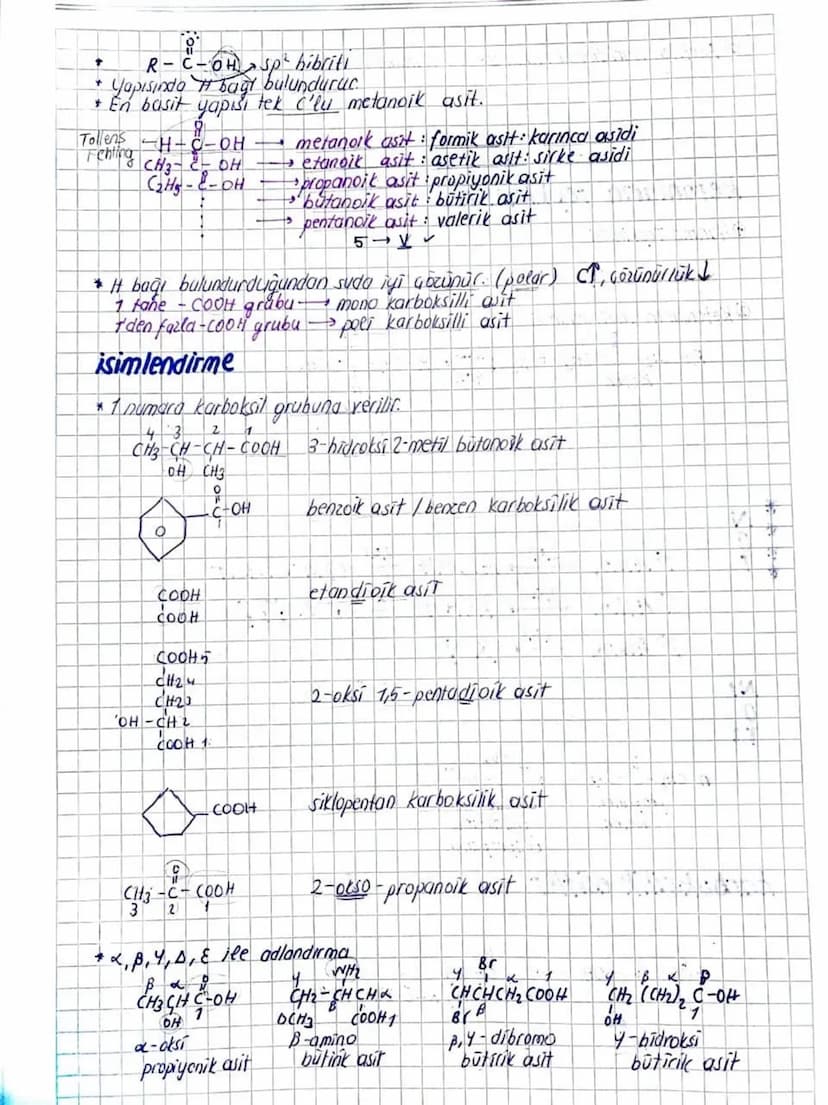 * R - C - OH → sp² hibriti
O
* Yapısında H bağı bulundurur.
* En basit yapısı tek C'lu metanoik asit.
Tollens
Fehling
O
H - C - OH → metanoik asit : formik asit : karınca asidi
CH3 - C - OH → etanoik asit : asetik asit : sirke asidi
C2H5 - C - OH → propanoik asit : propiyonik asit
→ bütanoik asit : bütirik asit
→ pentanoik asit : valerik asit
5 → V ✓
* H bağı bulundurduğundan suda iyi çözünür. (polar) C↑, çözünürlük↓
1 tane - COOH grubu → mono karboksilli asit
1'den fazla - COOH grubu → poli karboksilli asit
isimlendirme
* 1 numara karboksil grubuna verilir.
4 3 2 1
CH3 - CH - CH - COOH 3-hidroksi 2-metil bütanoik asit
OH CH3
O
C - OH benzoik asit / benzen karboksilik asit
COOH etandioik asit
COOH
COOH 5
CH2 4
CH2 3 2-oksi 1,5-pentadioik asit
OH - CH 2
COOH 1
COOH siklopentan karboksilik asit
O
CH3 - C - COOH 2-okso-propanoik asit
3 2 1
* α, β, γ, Δ, ε ile adlandırma
β α O
CH3 CH C - OH
OH 1
α-oksi
propiyonik asit
γ NH2
CH2 - CH CH α
OCH3 β COOH 1
β-amino
bütirik asit
Br
γ α 1
CH CH CH2 COOH
Br β
β, γ - dibromo
bütirik asit
γ β α O
CH2 (CH2)2 C - OH
OH 1
γ-hidroksi
bütirik asit